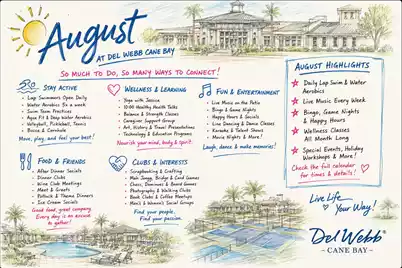 August
AT DEL WEBB CANE BAY
SO MUCH TO DO, SO MANY WAYS TO CONNECT!
STAY ACTIVE
• Lap Swimmers Open Daily
• Water Aerobics 5x a week
• Swim Team Practices
• Aqua Fit & Deep Water Aerobics
• Volleyball, Pickleball, Tennis
• Bocce & Cornhole
Move, play, and feel your best!
WELLNESS & LEARNING
• Yoga with Jessica
• 10:00 Healthy Health Talks
• Balance & Strength Classes
• Caregiver Support Group
• Art, History & Travel Presentations
• Technology & Education Programs
Nourish your mind, body & spirit.
FUN & ENTERTAINMENT
• Live Music on the Patio
• Bingo & Game Nights
• Happy Hours & Socials
• Line Dancing & Dance Classes
• Karaoke & Talent Shows
• Movie Nights & More!
Laugh, dance & make memories!
FOOD & FRIENDS
• After Dinner Socials
• Dinner Clubs
• Wine Club Meetings
• Meet & Greets
• Potluck & Theme Dinners
• Ice Cream Socials
Good food, great company.
Every day is an excuse
to gather!
CLUBS & INTERESTS
• Scrapbooking & Crafting
• Mah Jongg, Bridge & Card Games
• Chess, Dominoes & Board Games
• Photography & Writing Club
• Book Clubs & Coffee Meetups
• Men's & Women's Social Groups
Find your people,
Find your passion.
AUGUST HIGHLIGHTS
Daily Lap Swim & Water
Aerobics
Live Music Every Week
Bingo, Game Nights
& Happy Hours
Wellness Classes
All Month Long
Special Events, Holiday
Workshops & More!
Check the full calendar
for times & details!
Live Life
Your Way!
Del Webb®
- CANE BAY -